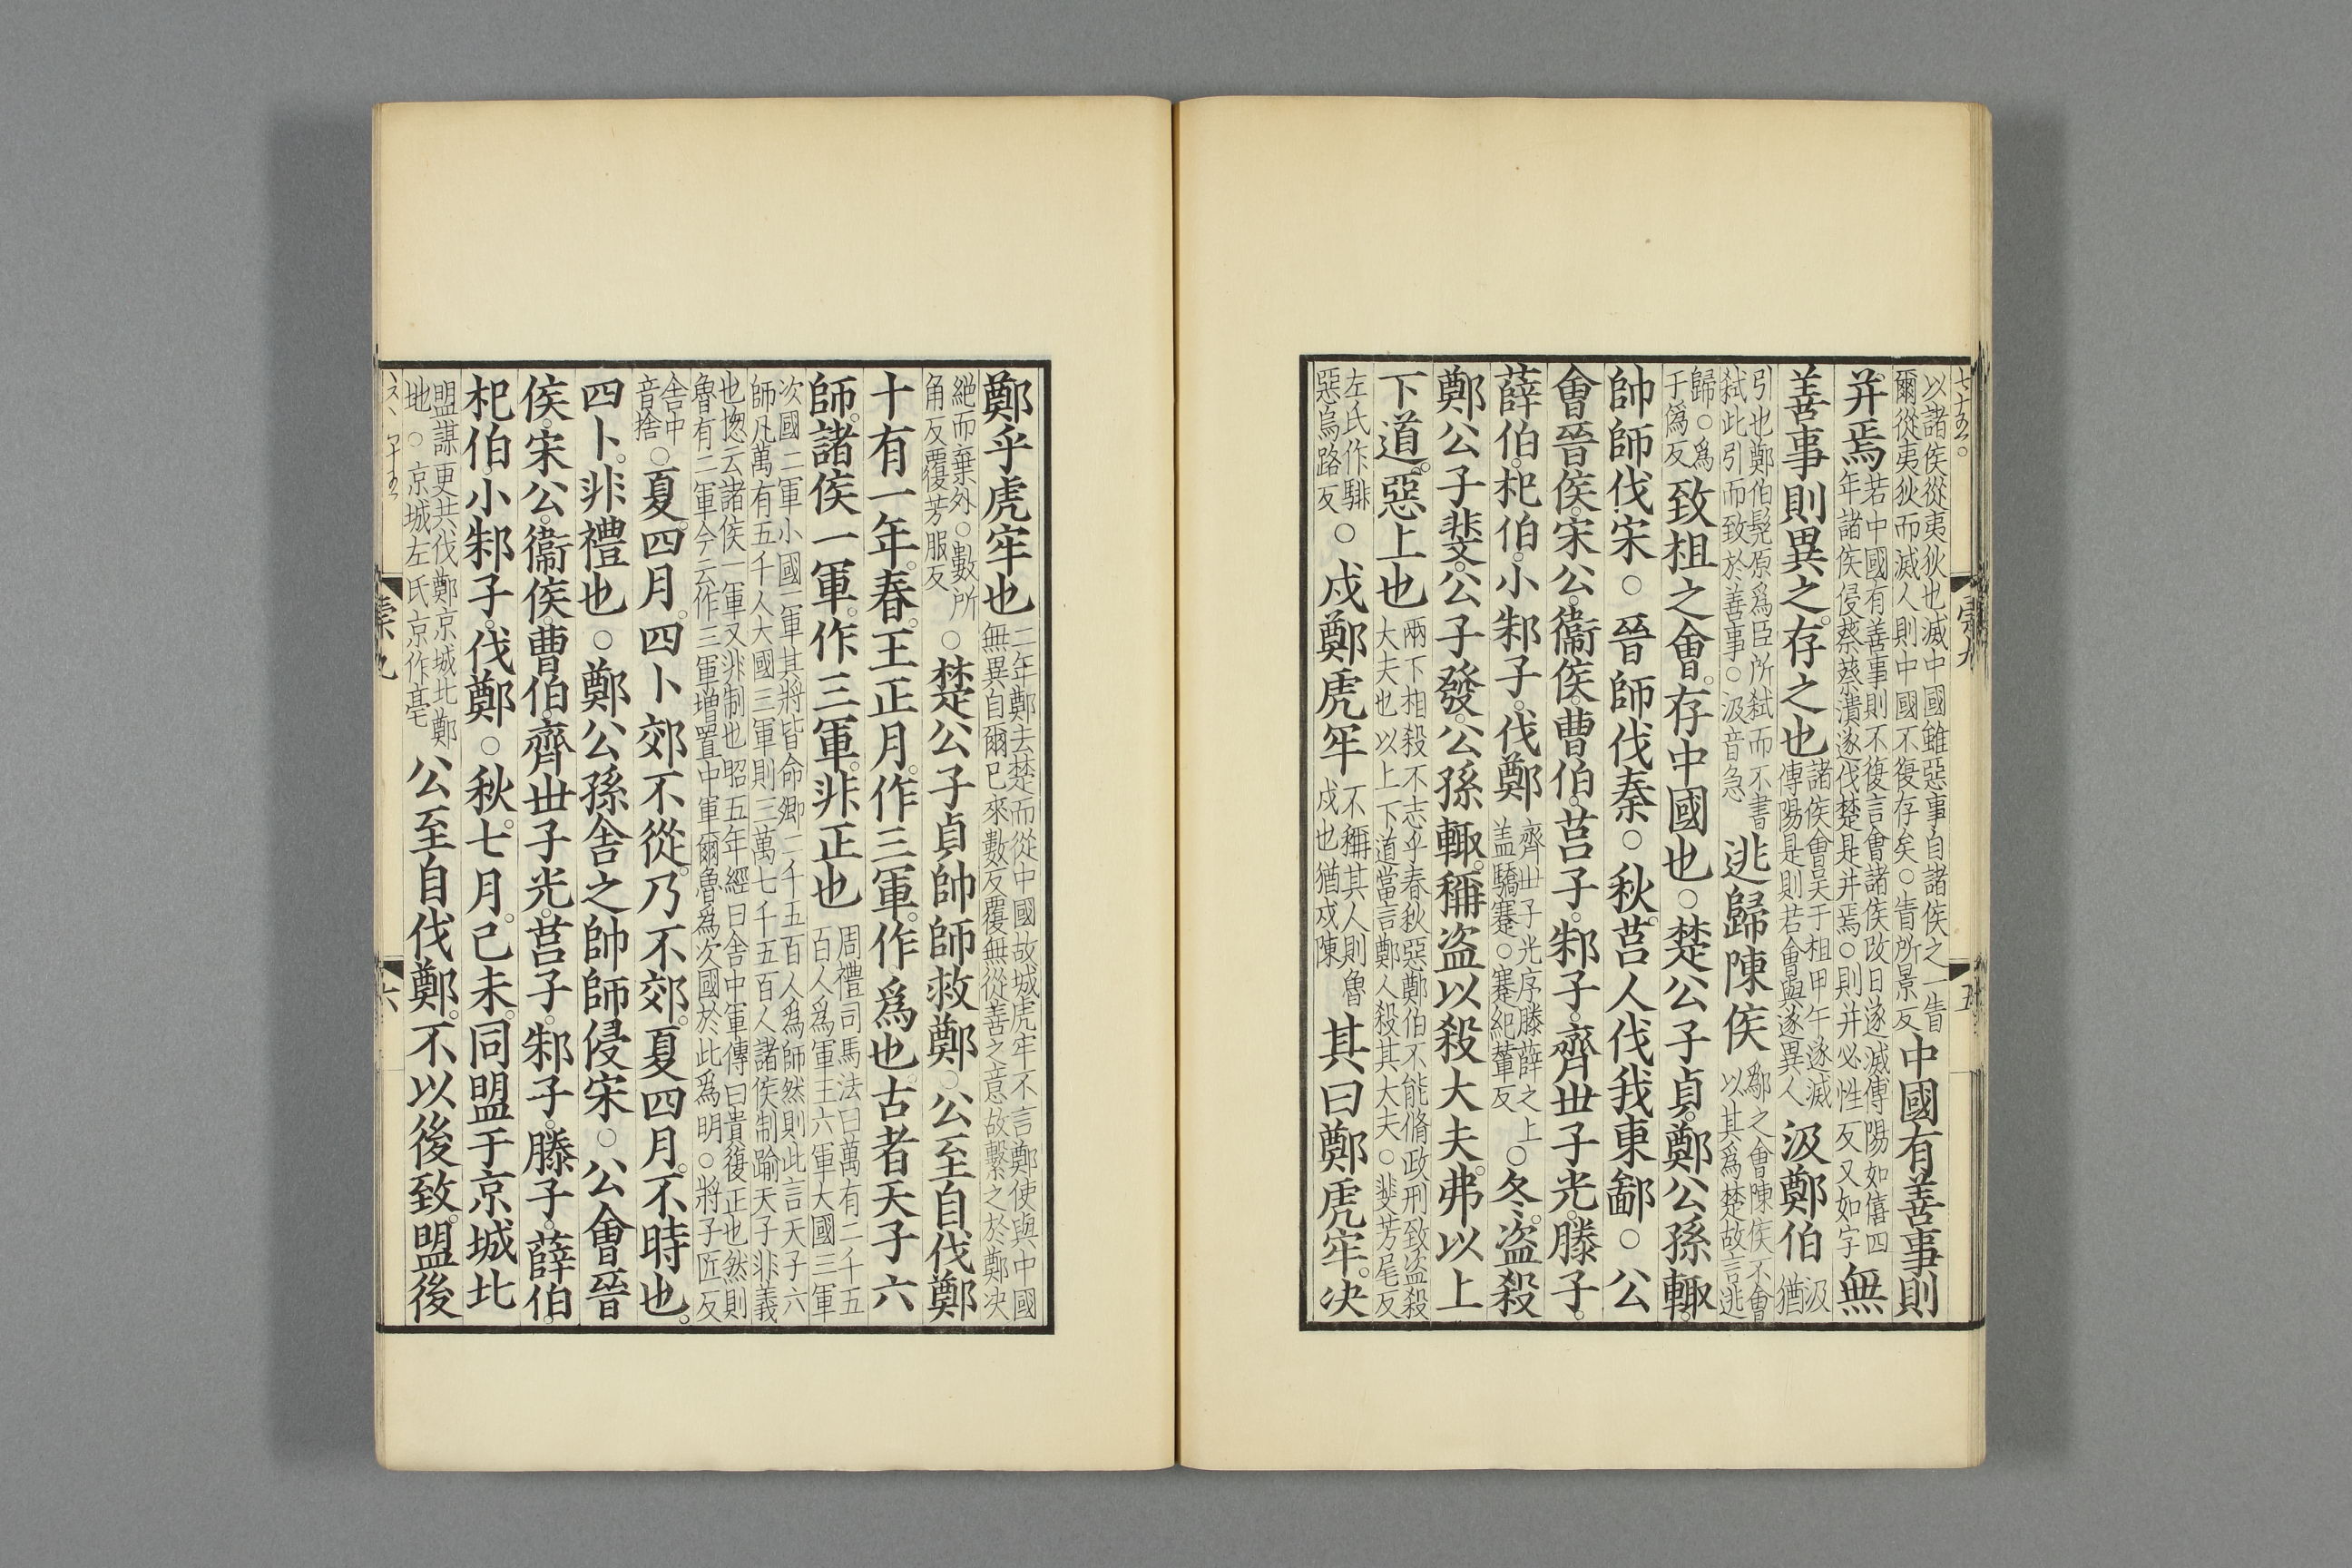 以諸侯從夷狄也滅中國雖惡事自諸侯之一眚爾從夷狄而滅人則中國不復存矣○眚所景反中國有善事則
并焉若中國有善事則不復言會諸侯改日遂滅傅陽如僖四年諸侯侵蔡蔡潰遂伐楚是并焉○則并必性反又如字無
善事則異之。存之也諸侯會吴于柤甲午遂滅傅陽是則若會與遂異人汲鄭伯汲猶
引也鄭伯髡原爲臣所弒而不書弒此引而致於善事○汲音急逃歸陳侯鄬之會陳侯不會以其爲楚故言逃
歸○爲于僞反致柤之會。存中國也○楚公子貞。鄭公孫輒。
帥師伐宋○晉師伐秦○秋。莒人伐我東鄙○公
會晉侯。宋公。衞侯。曹伯。莒子。邾子。齊丗子光。滕子。
薛伯。杞伯。小邾子。伐鄭齊丗子光序滕薛之上盖驕蹇○蹇紀輦反○冬。盗殺
鄭公子斐。公子發。公孫輒。稱盗以殺大夫。弗以上
下道。惡上也兩下相殺不志乎春秋惡鄭伯不能脩政刑致盗殺大夫也以上下道當言鄭人殺其大夫○斐芳尾反
左氏作騑惡烏路反○戍鄭虎牢不稱其人則魯戍也猶戍陳其曰鄭虎牢。决
鄭乎虎牢也二年鄭去楚而從中國故城虎牢不言鄭使與中國無異自爾已來數反覆無從善之意故繫之於鄭决
絶而棄外○數所角反覆芳服反○楚公子貞帥師救鄭○公至自伐鄭
十有一年。春。王正月。作三軍。作爲也。古者天子六
師。諸侯一軍。作三軍。非正也周禮司馬法曰萬有二千五百人爲軍王六軍大國三軍
次國二軍小國一軍其將皆命卿二千五百人爲師然則此言天子六師凡萬有五千人大國三軍則三萬七千五百人諸侯制踰天子非義
也揔云諸侯一軍又非制也昭五年經曰舍中軍傳曰貴復正也然則魯有二軍今云作三軍增置中軍爾魯爲次國於此爲明○將子匠反
舍中音捨○夏。四月。四卜郊不從。乃不郊。夏四月。不時也。
四卜。非禮也○鄭公孫舍之帥師侵宋○公會晉
侯。宋公。衞侯。曹伯。齊丗子光。莒子。邾子。滕子。薛伯。
杞伯。小邾子。伐鄭○秋。七月。己未。同盟于京城北
盟謀更共伐鄭京城北鄭地○京城左氏京作亳公至自伐鄭。不以後致。盟後